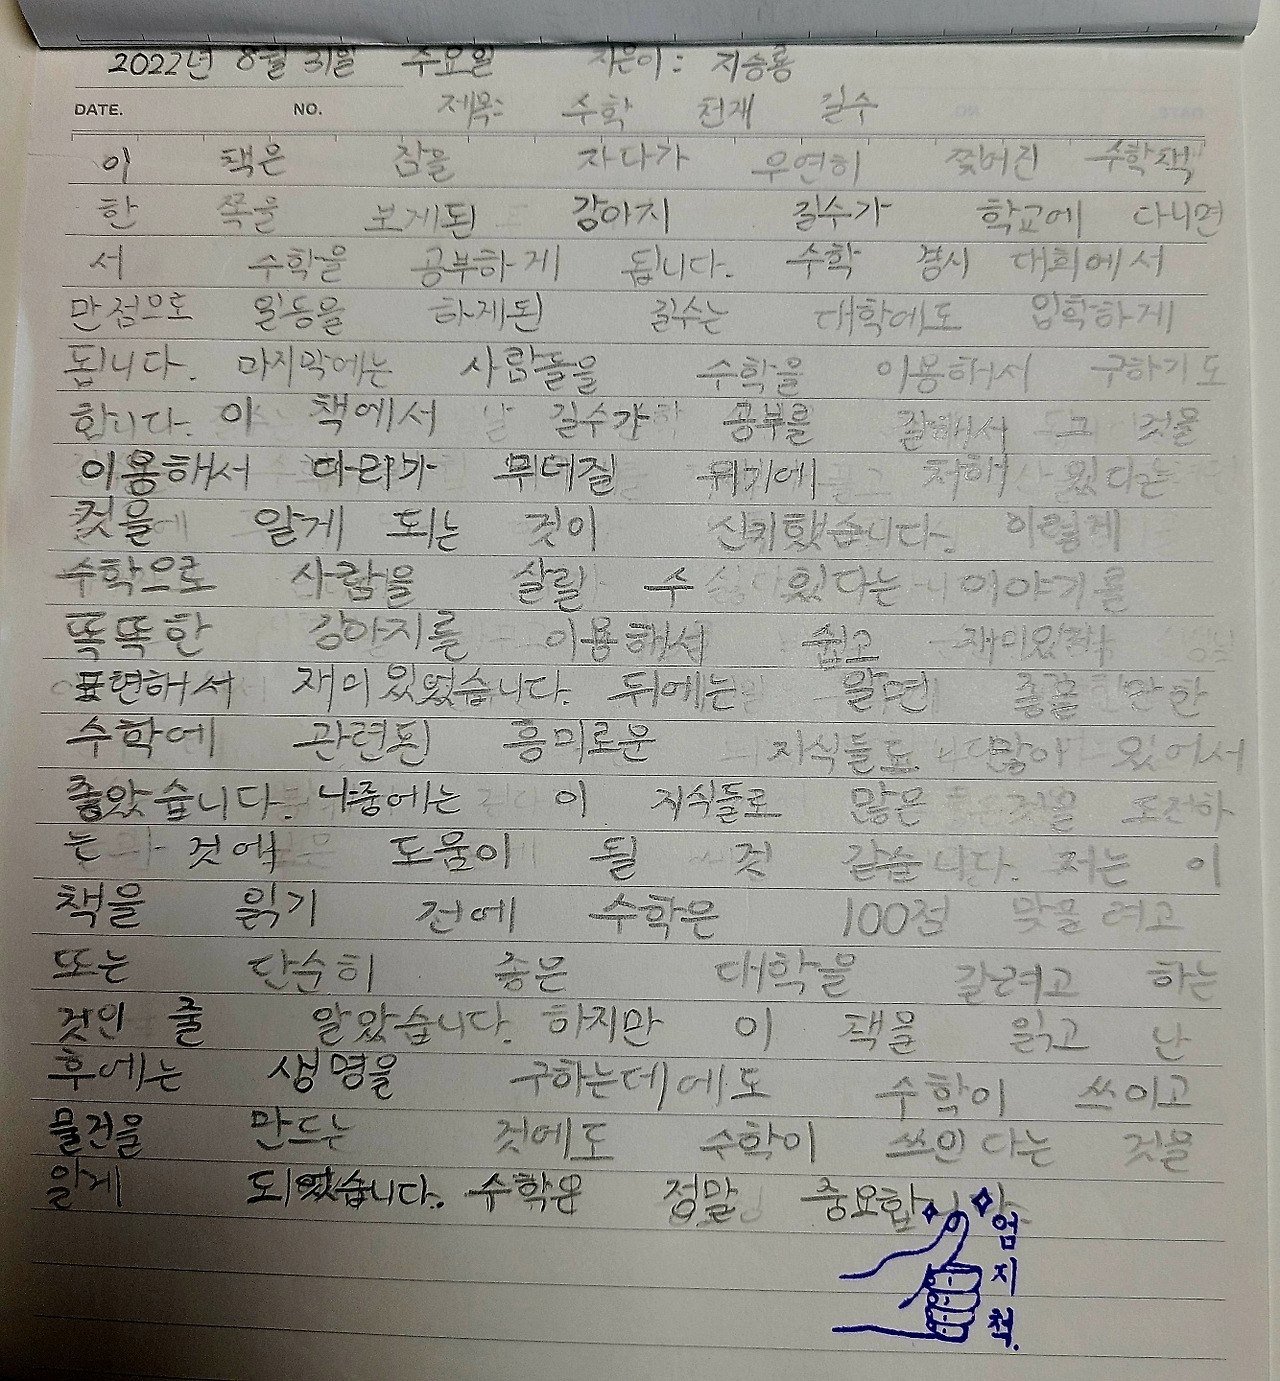 2022년 8월 31일 수요일 지은이: 지승룡
DATE. NO. 제목: 수학 천재 길수
이 책은 잠을 자다가 우연히 찢어진 수학책
한 쪽을 보게된 강아지 길수가 학교에 다니면
서 수학을 공부하게 됩니다. 수학 경시 대회에서
만점으로 일등을 하게된 길수는 대학에도 입학하게
됩니다. 마지막에는 사람들을 수학을 이용해서 구하기도
합니다. 이 책에서 길수가 공부를 잘해서 그 것을
이용해서 다리가 무데질 위기에 처해 있다는
것을 알게 되는 것이 신기했습니다. 이렇게
수학으로 사람을 살릴 수 있다는 이야기를
똑똑한 강아지를 이용해서 쉽고 재미있게
표현해서 재미있었습니다. 뒤에는 알면 좋을 만한
수학에 관련된 흥미로운 지식들도 많이 있어서
좋았습니다. 나중에는 이 지식들로 많은 것을 도전하
는 것에 도움이 될 것 같습니다. 저는 이
책을 읽기 전에 수학은 100점 맞을려고
또는 단순히 좋은 대학을 갈려고 하는
것인 줄 알았습니다. 하지만 이 책을 읽고 난
후에는 생명을 구하는데에도 수학이 쓰이고
물건을 만드는 것에도 수학이 쓰인다는 것을
알게 되었습니다. 수학은 정말 중요합니다.
엄
지
척.